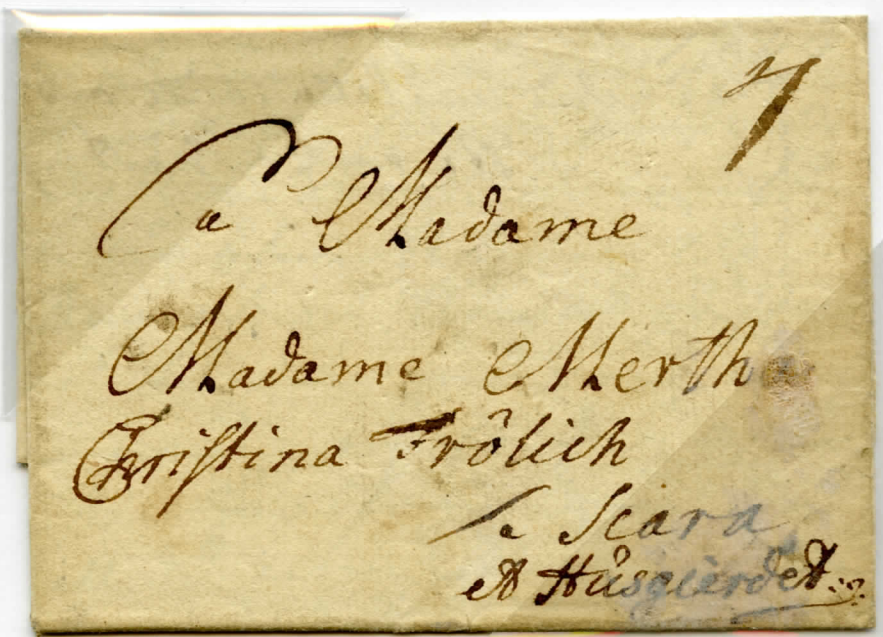 7
a Madame
Madame Merth
Christina Frölich
a Scara
et Husgierdet